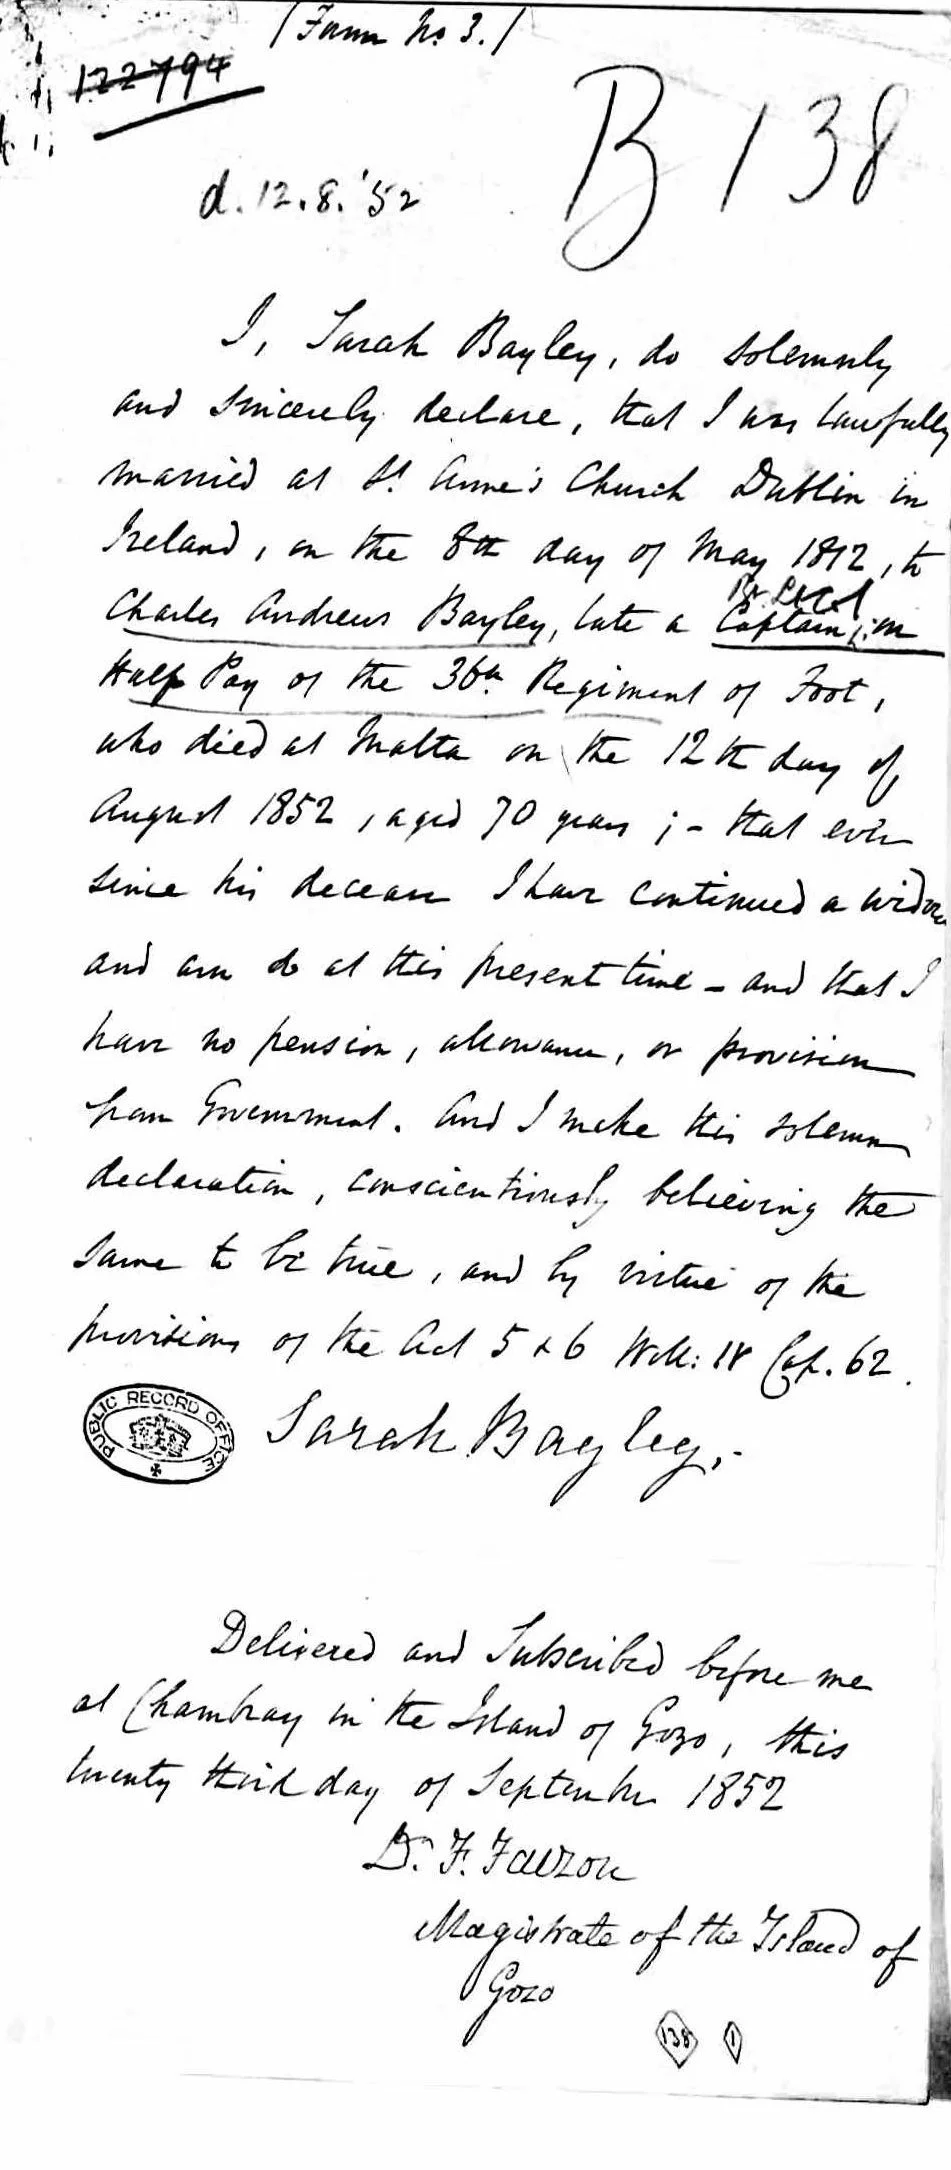 (Form No 3.)
122794
B 138
d. 12. 8. '52
I, Sarah Bayley, do solemnly
and sincerely declare, that I was lawfully
married at St. Anne's Church Dublin in
Ireland, on the 8th day of May 1812, to
Bt. Lt Col
Charles Andrews Bayley, late a Captain, on
Half Pay of the 36th Regiment of Foot,
who died at Malta on the 12th day of
August 1852, aged 70 years ; - that ever
since his decease I have continued a widow
and am so at this present time - and that I
have no pension, allowance, or provision
from Government. And I make this solemn
declaration, conscientiously believing the
same to be true, and by virtue of the
provisions of the Act 5 & 6 Will: IV Cap. 62.
PUBLIC RECORD OFFICE
Sarah Bayley,-
Delivered and Subscribed before me
at Chambray in the Island of Gozo, this
twenty third day of September 1852
Dr. F. Fauzon
Magistrate of the Island of
Gozo
138 1